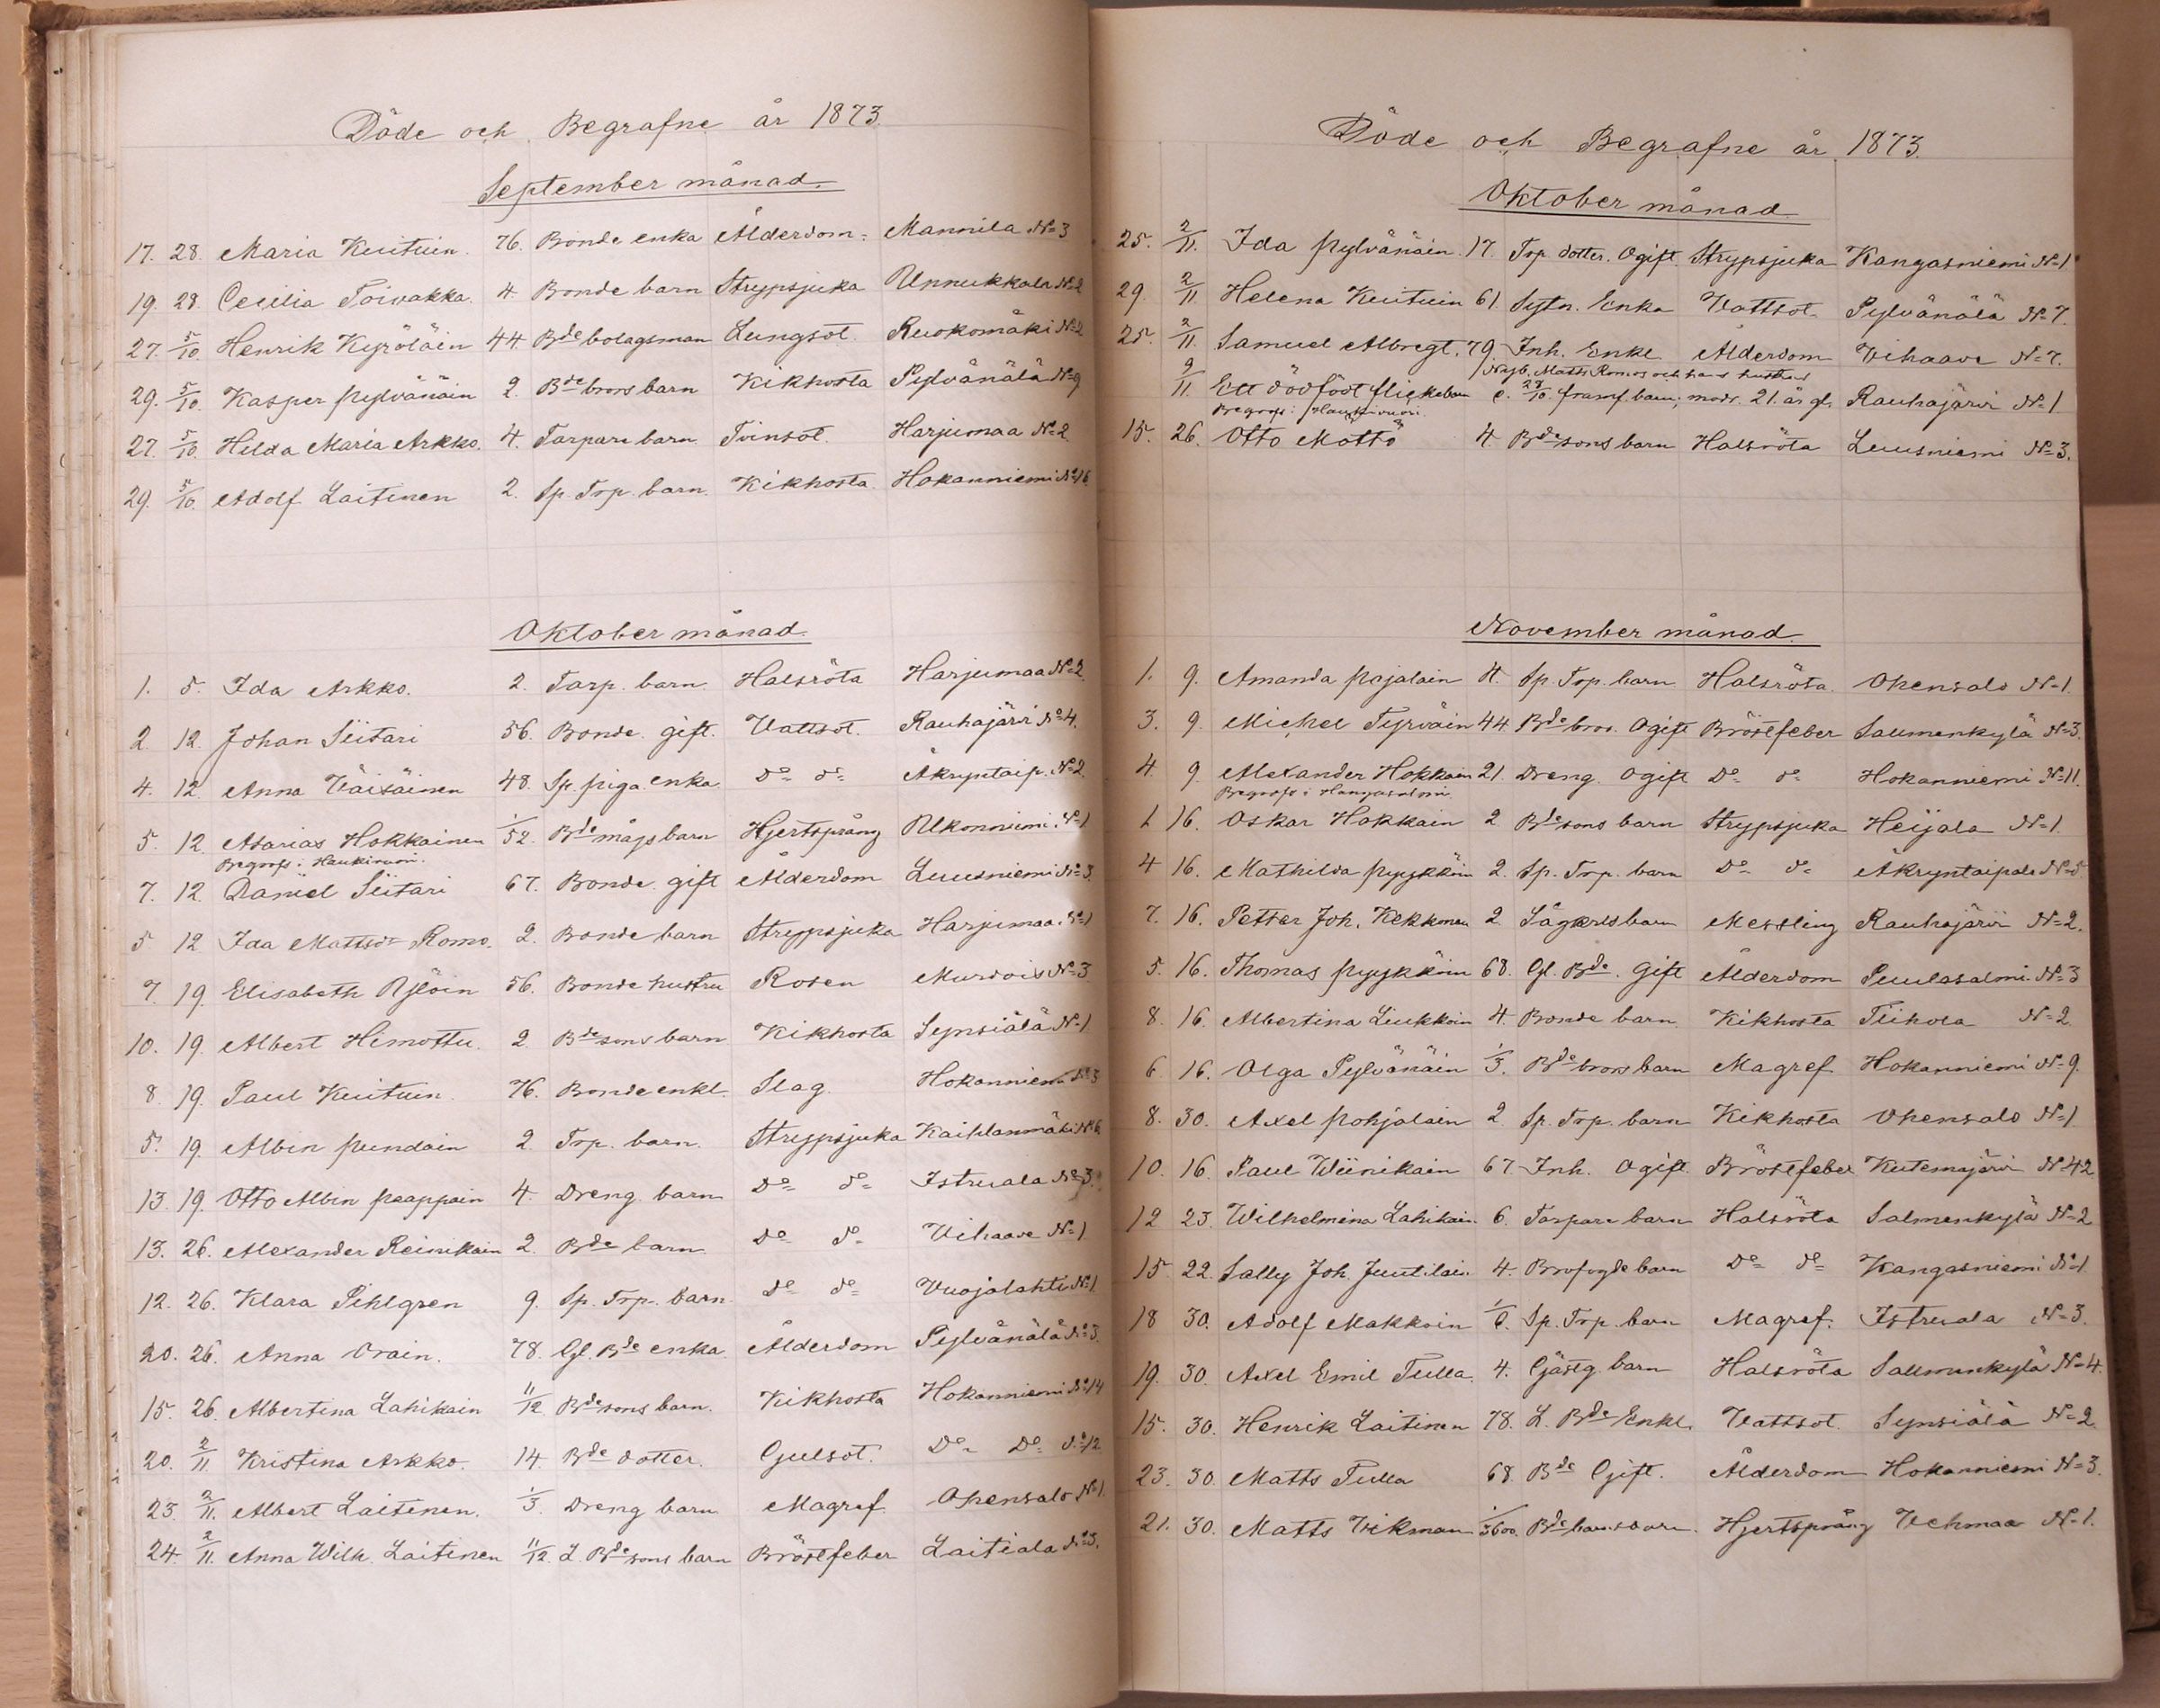 Döde och Begrafne år 1873.
September månad.
17. 28. Maria Kuituin. 76. Bonde enka Ålderdom. Mannila No 3
19. 28. Cecilia Toivakka. 4. Bonde barn Strypsjuka Unnukkala No 2
27. 5/10. Henrik Kyröläin 44. Bde bolagsman Lungsot. Ruokomäki No 2
29. 5/10. Kasper Pylvänäin 2. Bde brors barn Kikhosta Pylvänälä No 9
27. 5/10. Hilda Maria Arkko. 4. Torpare barn Tvinsot. Harjumaa No 2
29. 5/10. Adolf Laitinen 2. Sp. Trp. barn. Kikhosta. Hokanniemi No 16
Oktober månad.
1. 5. Ida Arkko. 2. Torp. barn Halsröta Harjumaa No 2.
2. 12. Johan Siitari 56. Bonde. gift. Vattsot. Rauhajärvi No 4.
4. 12. Anna Väisäinen 48. Sp. piga enka Do do Äkryntaip. No 2.
5. 12. Asarias Hokkainen 1/52. Bde mågs barn Hjertsprång Ukonniemi. No 1
Begrofs i Haukivuori.
7. 12. Daniel Siitari 67. Bonde. gift Ålderdom Luusniemi No 3.
5 12 Ida Mattsdr Romo. 2. Bonde barn Strypsjuka Harjumaa. No 1
7. 19. Elisabeth Ylöin 56. Bonde hustru Rosen Murdois No 3
10. 19. Albert Himottu. 2. Bde sons barn Kikhosta Synsiälä No 1
8. 19. Paul Kuituin. 76. Bonde enkl. Slag. Hokanniemi No 3
5. 19. Albin Pundain 2. Trp. barn. Strypsjuka Kaihlanmäki No 6
13. 19. Otto Albin Paappain 4. Dreng barn Do do Istruala No 3.
13. 26. Alexander Reinikain 2. Bde barn Do do Vihaave No 1
12. 26. Klara Pihlgren 9. Sp. Trp. barn do do Vuojalahti No 1
20. 26. Anna Orain. 78. Gl. Bde enka. Ålderdom Pylvänälä No 3.
15. 26. Albertina Lahikain 11/12 Bde sons barn. Kikhosta Hokanniemi No 14
20. 2/11. Kristina Arkko. 14. Bde dotter. Gulsot. Do Do No 12.
23. 2/11. Albert Laitinen. 1/3. Dreng barn Magref. Ohensalo No 1.
24. 2/11. Anna Wilh. Laitinen 11/12. L. Bde sons barn Bröstfeber Laitiala No 3.
Döde och Begrafne år 1873.
Oktober månad
25. 2/11. Ida Pylvänäin. 17. Trp. dotter. Ogift. Strypsjuka Kangasniemi No 1
29. 2/11 Helena Kuituin 61. Sytn. Enka Vattsot. Pylvänälä No 7.
25. 2/11. Samuel Albregt. 79. Inh. Enkl. Ålderdom Vihaave No 7.
Nyb. Matts Romos och hans hustrus
9/11 Ett dödfödt flickebarn e. 28/10. framf. barn; modr. 21. år gl. Rauhajärvi No 1
Begrofs i Haukivuori.
15. 26. Otto Mottö 4. Bde sons barn Halsröta Luusniemi No 3.
November månad.
1. 9. Amanda Pajalain 4. Sp. Trp. barn Halsröta. Ohensalo No 1.
3. 9. Michel Tyrväin 44. Bde bror. Ogift Bröstfeber Salmenkylä No 3.
4. 9 Alexander Hokkain 21. Dreng. Ogift Do do Hokanniemi No 11.
Begrofs i Hankasalmi.
1 16. Oskar Hokkain 2 Bde sons barn Strypsjuka Heijala No 1.
4 16. Mathilda Pyykköin 2. Sp. Trp. barn Do do Äkryntaipale No 5
7. 16. Petter Joh. Kekkonen 2. Sågarebarn Messling Rauhajärvi No 2.
5. 16. Thomas Pyykköin 68. Gl. Bde. Gift Ålderdom Puulasalmi No 3
8. 16. Albertina Liukkoin 4. Bonde barn Kikhosta Tiihola No 2.
6. 16. Olga Pylvänäin 1/3. Bde brors barn Magref. Hokanniemi No 9.
8. 30. Axel Pohjalain 2 Sp. Trp. barn Kikhosta Ohensalo No 1
10. 16. Paul Wiinikain 67. Inh. Ogift. Bröstfeber Kutemajärvi No 42
12 23. Wilhelmina Lahikain. 6. Torpare barn Halsröta Salmenkylä No 2
15 22. Sally Joh. Juutilain 4. Brofogde barn Do do Kangasniemi No 1
18 30. Adolf Makkoin 1/6. Sp. Trp. barn Magref. Istruala No 3.
19. 30. Axel Emil Tulla. 4. Gästg. barn Halsröta Salmenkylä No 4.
15. 30. Henrik Laitinen 78. L. Bde Enkl. Vattsot. Synsiälä No 2.
23. 30. Matts Tulla 68. Bde Gift. Ålderdom Hokanniemi No 3.
21. 30. Matts Vikman 1/3600. Bde barnsbarn. Hjertsprång Vehmaa No 1.